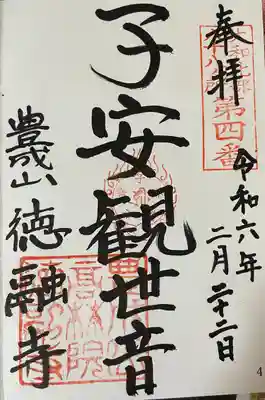 奉拝
令和六年
二月二十二日
子安観世音
豊成山 徳融寺
第四番
高林院
4